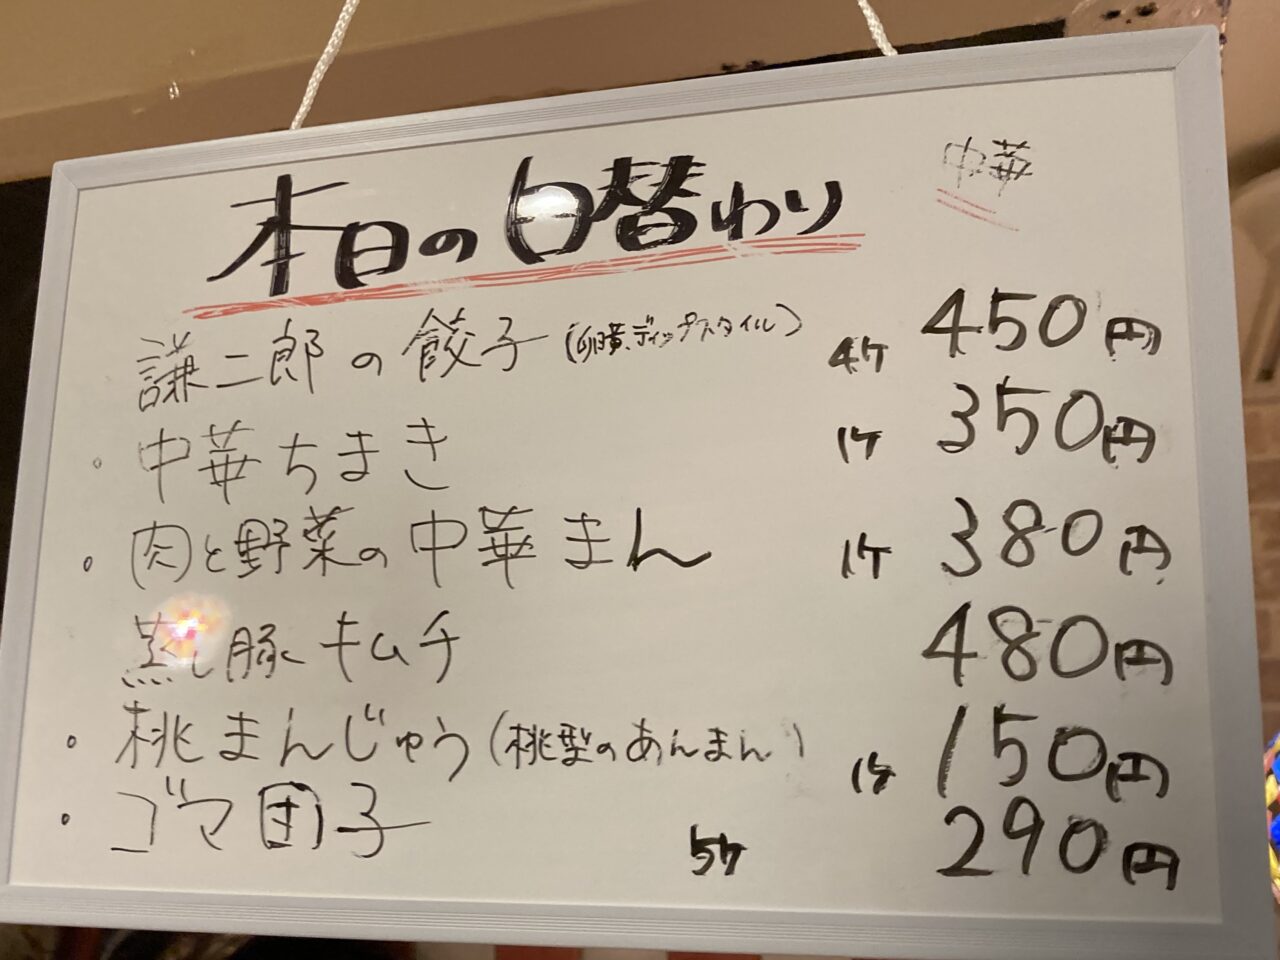 本日の日替わり
中華
謙二郎の餃子(卵黄、ディップスタイル) 4ケ 450円
・中華ちまき 1ケ 350円
・肉と野菜の中華まん 1ケ 380円
蒸し豚キムチ 480円
・桃まんじゅう(桃型のあんまん) 1ケ 150円
・ゴマ団子 5ケ 290円